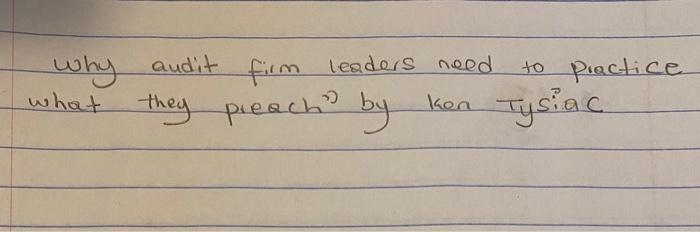 why audit firm leaders need to practice
what they preach" by Ken Tysiac